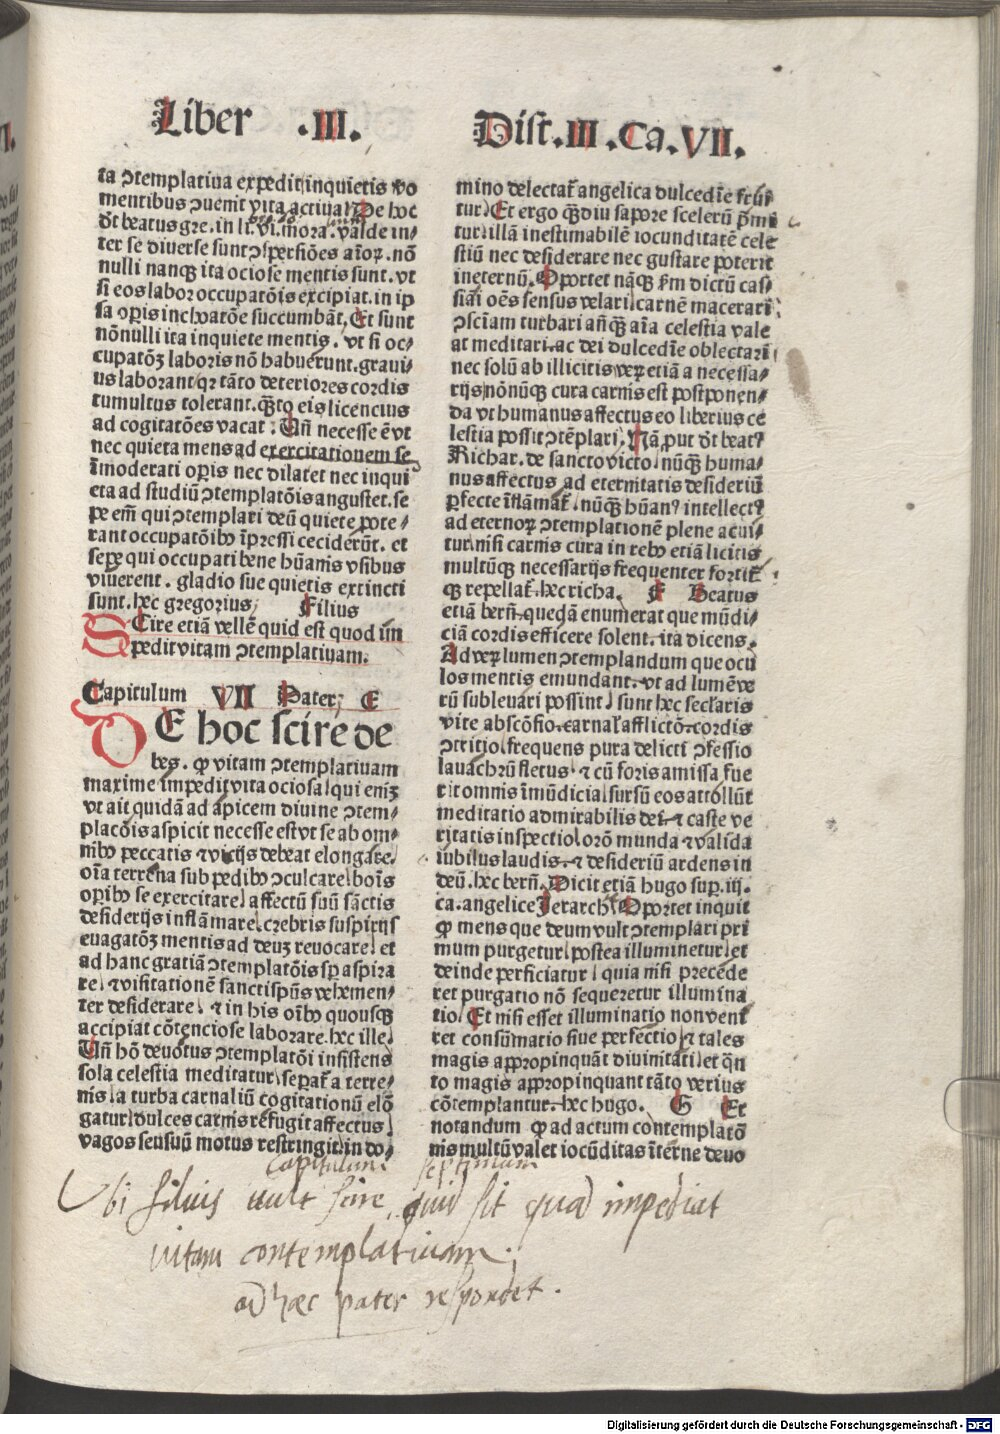 Liber .III. Dist.III.Ca.VII.
ta ↄtemplatiua expedit inquietis vo
mentibus ↄuenit vita actiua. De hoc
dt̄ beatus gre. in li. vi. mora. valde in⸗
ter se diuerse sunt ↄspersiões aīoꝝ. nō
nulli nanqꝫ ita ociose mentis sunt. vt
si eos labor occupatōis excipiat. in ip
sa oꝑis inchoatōe succumbāt. Et sunt
nōnulli ita inquiete mentis. vt si oc⸗
cupatōꝫ laboris nō habuerunt. graui⸗
us laborant qꝛ tāto deteriores cordis
tumultus tolerant. qͣ̄to eis licencius
ad cogitatōes vacat. Uñ necesse ē vt
nec quieta mens ad exercitationem se
īmoderati oꝑis nec dilatet nec inqui
eta ad studiū ↄtemplatōis angustet. se
pe em̄ qui ↄtemplari deū quiete pote⸗
rant occupatōibꝰ īpressi ceciderūt. et
sepe qui occupati bene hūanis vsibus
viuerent. gladio sue quietis extincti
sunt. hec gregorius. Filius
SCire etiā vellē quid est quod im
pedit vitam ↄtemplatiuam.
Capitulum VII Pater; E
DE hoc scire de
bes. ꝙ vitam ↄtemplatiuam
maxime impedit vita ociosa. qui enīꝫ
vt ait quidā ad apicem diuine ↄtem⸗
placōis aspicit necesse est vt se ab om⸗
nibꝰ peccatis ⁊ vicijs debeat elongare.
oīa terrena sub pedibꝰ ↄculcare. boīs
oꝑibꝰ se exercitare. affectū suū sāctis
desiderijs inflāmare. crebris suspirijs
euagatōꝫ mentis ad deuꝫ reuocare. et
ad hanc gratiā ↄtemplatōis sꝑ aspira
re. ⁊ visitationē sancti spūs vehemen⸗
ter desiderare. ⁊ in his oībꝰ quousqꝫ
accipiat cōtenciose laborare. hec ille.
Uñ hō deuotus ↄtemplatōi insistens
sola celestia meditatur. seꝑat̄ a terre⸗
nis. a turba carnaliū cogitationū elō
gatur. dulces carnis refugit affectus.
vagos sensuū motus restringit. in do⸗
mino delectat̄ angelica dulcedīe frui
tur. Et ergo qͣ̄diu sapore scelerū p̄mi
tur. illā inestimabilē iocunditatē cele
stiū nec desiderare nec gustare poterit
in eternū. Oportet nāqꝫ ẜm dictū cas⸗
siāi oēs sensus velari. carnē macerari.
ↄsciam turbari añqͣ̄ aīa celestia vale
at meditari. ac dei dulcedīe oblectari
nec solū ab illicitis veꝝ etiā a necessa⸗
rijs nōnūqꝫ cura carnis est postponen⸗
da vt humanus affectus eo liberius ce
lestia possit ↄtēplari. Nā put dt̄ beatꝰ
Richar. de sancto victo. nūqͣ̄ huma⸗
nus affectus ad eternitatis desideriū
ꝑfecte īflāmat̄. nūqͣ̄ hūanꝰ intellectꝰ
ad eternoꝝ ↄtemplationē plene acui⸗
tur. nisi carnis cura in rebꝰ etiā licitis
multūqꝫ necessarijs frequenter fortit̄
qꝫ repellat̄. hec richa. F Beatus
etiā berñ. quedā enumerat que mūdi⸗
ciā cordis efficere solent. ita dicens.
Ad veꝝ lumen ↄtemplandum que ocu
los mentis emundant. vt ad lumē ve
rū subleuari possint. sunt hec seclaris
vite abscōsio. carnal̓ afflictō. cordis
ↄtritio. frequens pura delicti ↄfessio
lauachrū fletus. ⁊ cū foris amissa fue
rit omnis īmūdicia. sursū eos attollūt
meditatio admirabilis dei. ⁊ caste ve
ritatis inspectio. orō munda ⁊ valida
iubilus laudis. ⁊ desideriū ardens in
deū. hec berñ. Dicit etiā hugo sup. iij.
ca. angelice Ierarch. Oportet inquit
ꝙ mens que deum vult ↄtemplari pri
mum purgetur. postea illuminetur. et
deinde perficiatur. quia nisi precede
ret purgatio nō sequeretur illumina
tio. Et nisi esset illuminatio non veni
ret consūmatio siue perfectio. ⁊ tales
magis appropinquāt diuinitati. et qn̄
to magis appropinquant tāto verius
cōtemplantur. hec hugo. G Et
notandum ꝙ ad actum contemplatō
nis multū valet iocūditas īterne deuo
Capitulum septimum
Ubi filius uult scire, quid sit quod impediat
uitam contemplatiuam;
ad haec pater respondet.
Digitalisierung gefördert durch die Deutsche Forschungsgemeinschaft - DFG